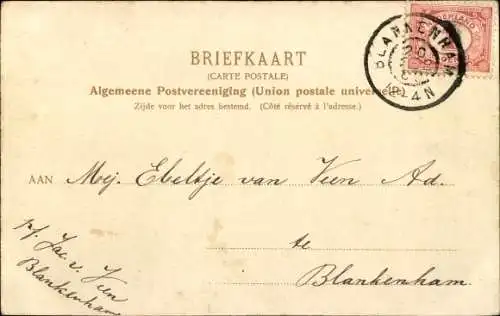 BRIEFKAART
(CARTE POSTALE)
Algemeene Postvereeniging (Union postale universelle)
Zijde voor het adres bestemd. (Côté réservé à l'adresse.)
NEDERLAND
BLANKENHAM
20
4N
AAN Mej. Ebeltje van Veen Ad.
te
Blankenham.
p/f Jac. v. Veen
Blankenham